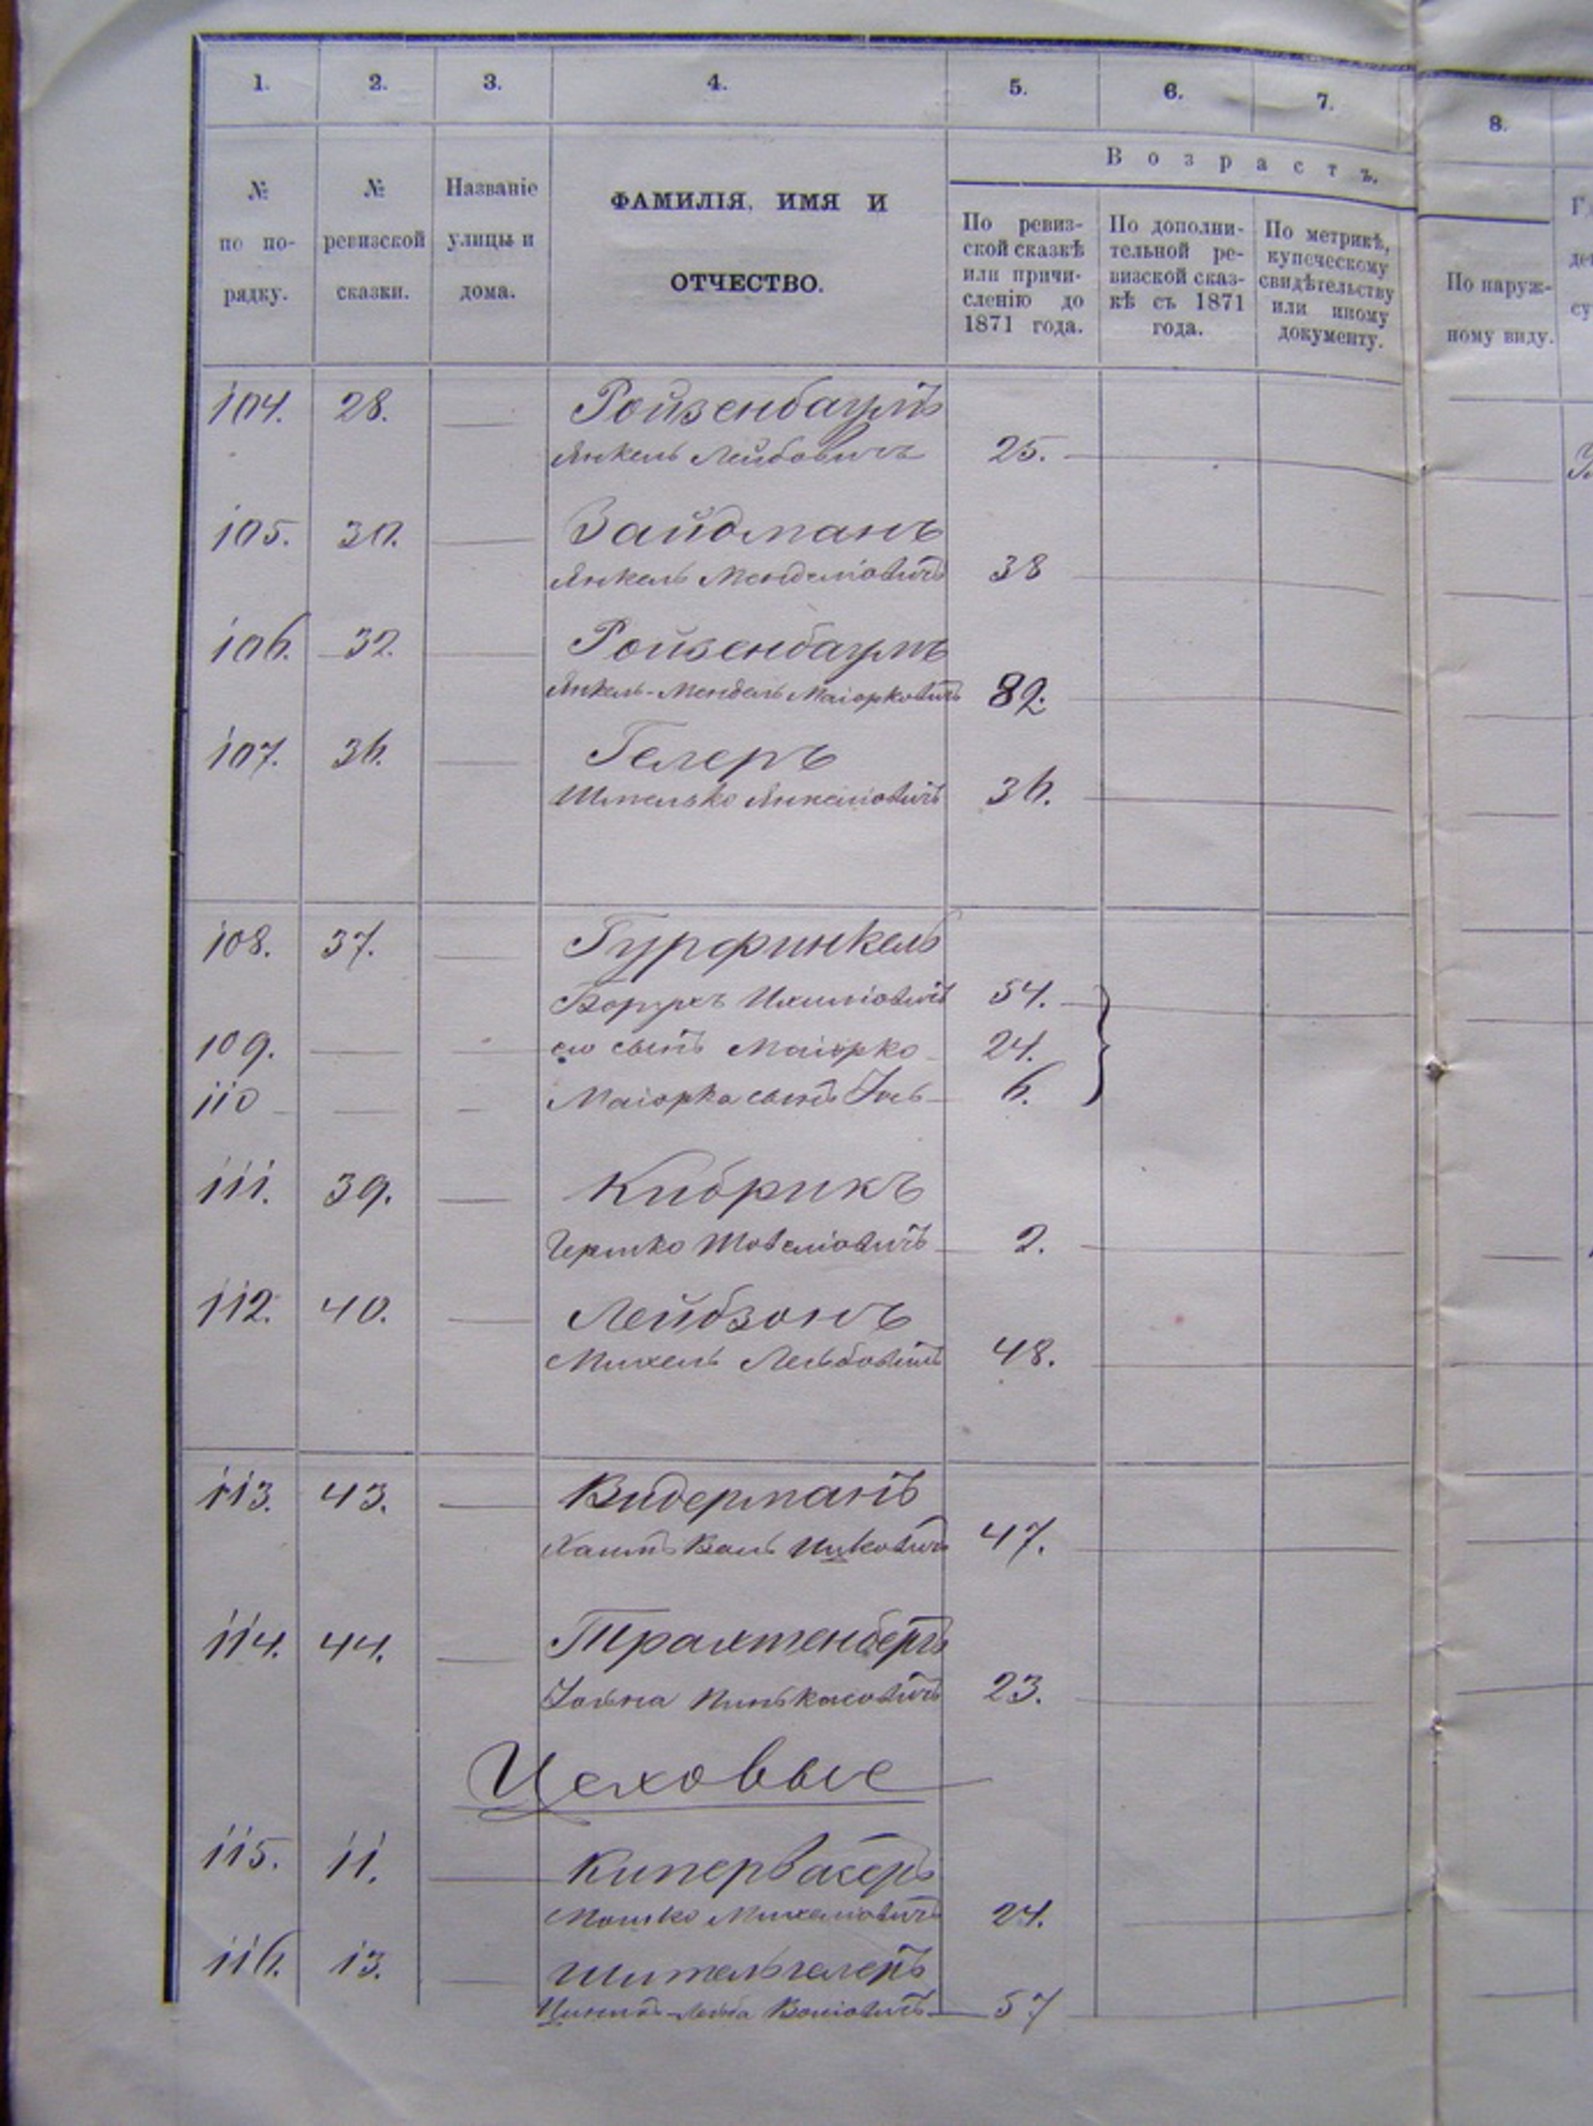 1. 2. 3. 4. 5. 6. 7. 8.
№ по по-рядку.
№ ревизской сказки.
Названіе улицы и дома.
ФАМИЛІЯ, ИМЯ И
ОТЧЕСТВО.
Возрастъ.
По ревиз-
ской сказкѣ
или причи-
сленію до
1871 года.
По дополни-
тельной ре-
визской сказ-
кѣ съ 1871
года.
По метрикѣ,
купеческому
свидѣтельству
или иному
документу.
По наруж-
ному виду.
104. 28. Ройзенбаумъ
Янкель Лейбовичъ 25.
105. 30. Зайдманъ
Янкель Менделіовичъ 38
106. 32. Ройзенбаумъ
Янкель-Мендель Маіорковичъ 82.
107. 36. Гелеръ
Шмелько Янкеліовичъ 36.
108. 37. Гурфинкель
Борухъ Ихиліовичъ 54.
109. его сынъ Маіорко 24.
110 Маіорка сынъ Іось 6.
111. 39. Кибрикъ
Гершко Шовеліовичъ 2.
112. 40. Лейбзонъ
Михель Лейбовичъ 48.
113. 43. Видерманъ
Хаимъ Волъ Ицковичъ 47.
114. 44. Трахтенбергъ
Іойна Пинькасовичъ 23.
Цеховые
115. 11. Кипервасеръ
Мошко Михеліовичъ 24.
116. 13. Шительгелеръ
Лейба Воліовичъ 57